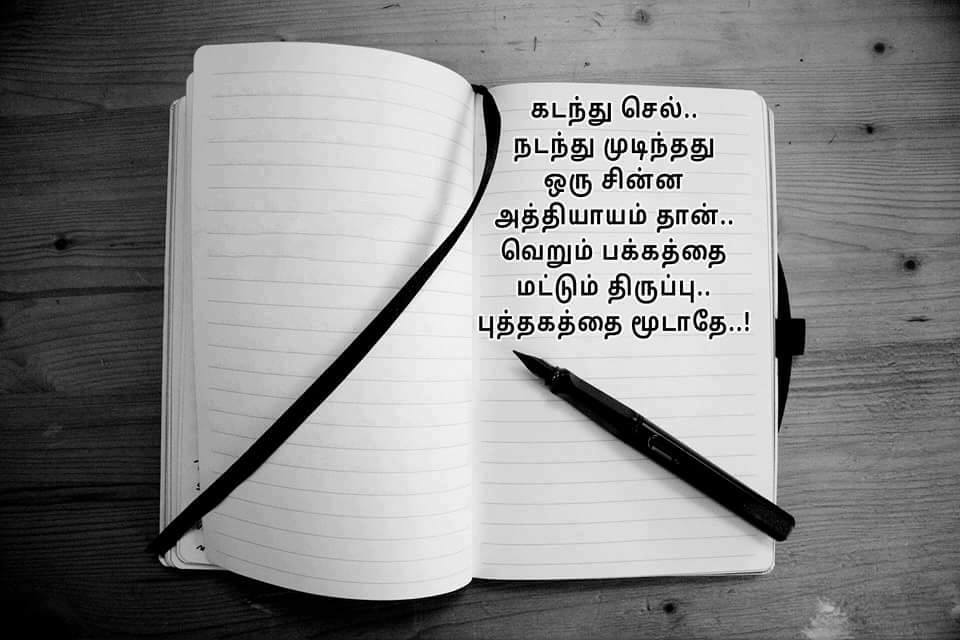 கடந்து செல்..
நடந்து முடிந்தது
ஒரு சின்ன
அத்தியாயம் தான்..
வெறும் பக்கத்தை
மட்டும் திருப்பு..
புத்தகத்தை மூடாதே..!